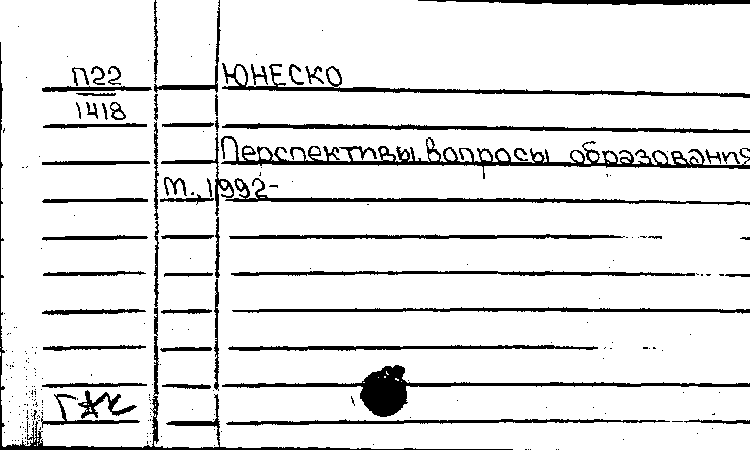 П22 ЮНЕСКО
1418
Перспективы. Вопросы образования
М., 1992-
ГЖК